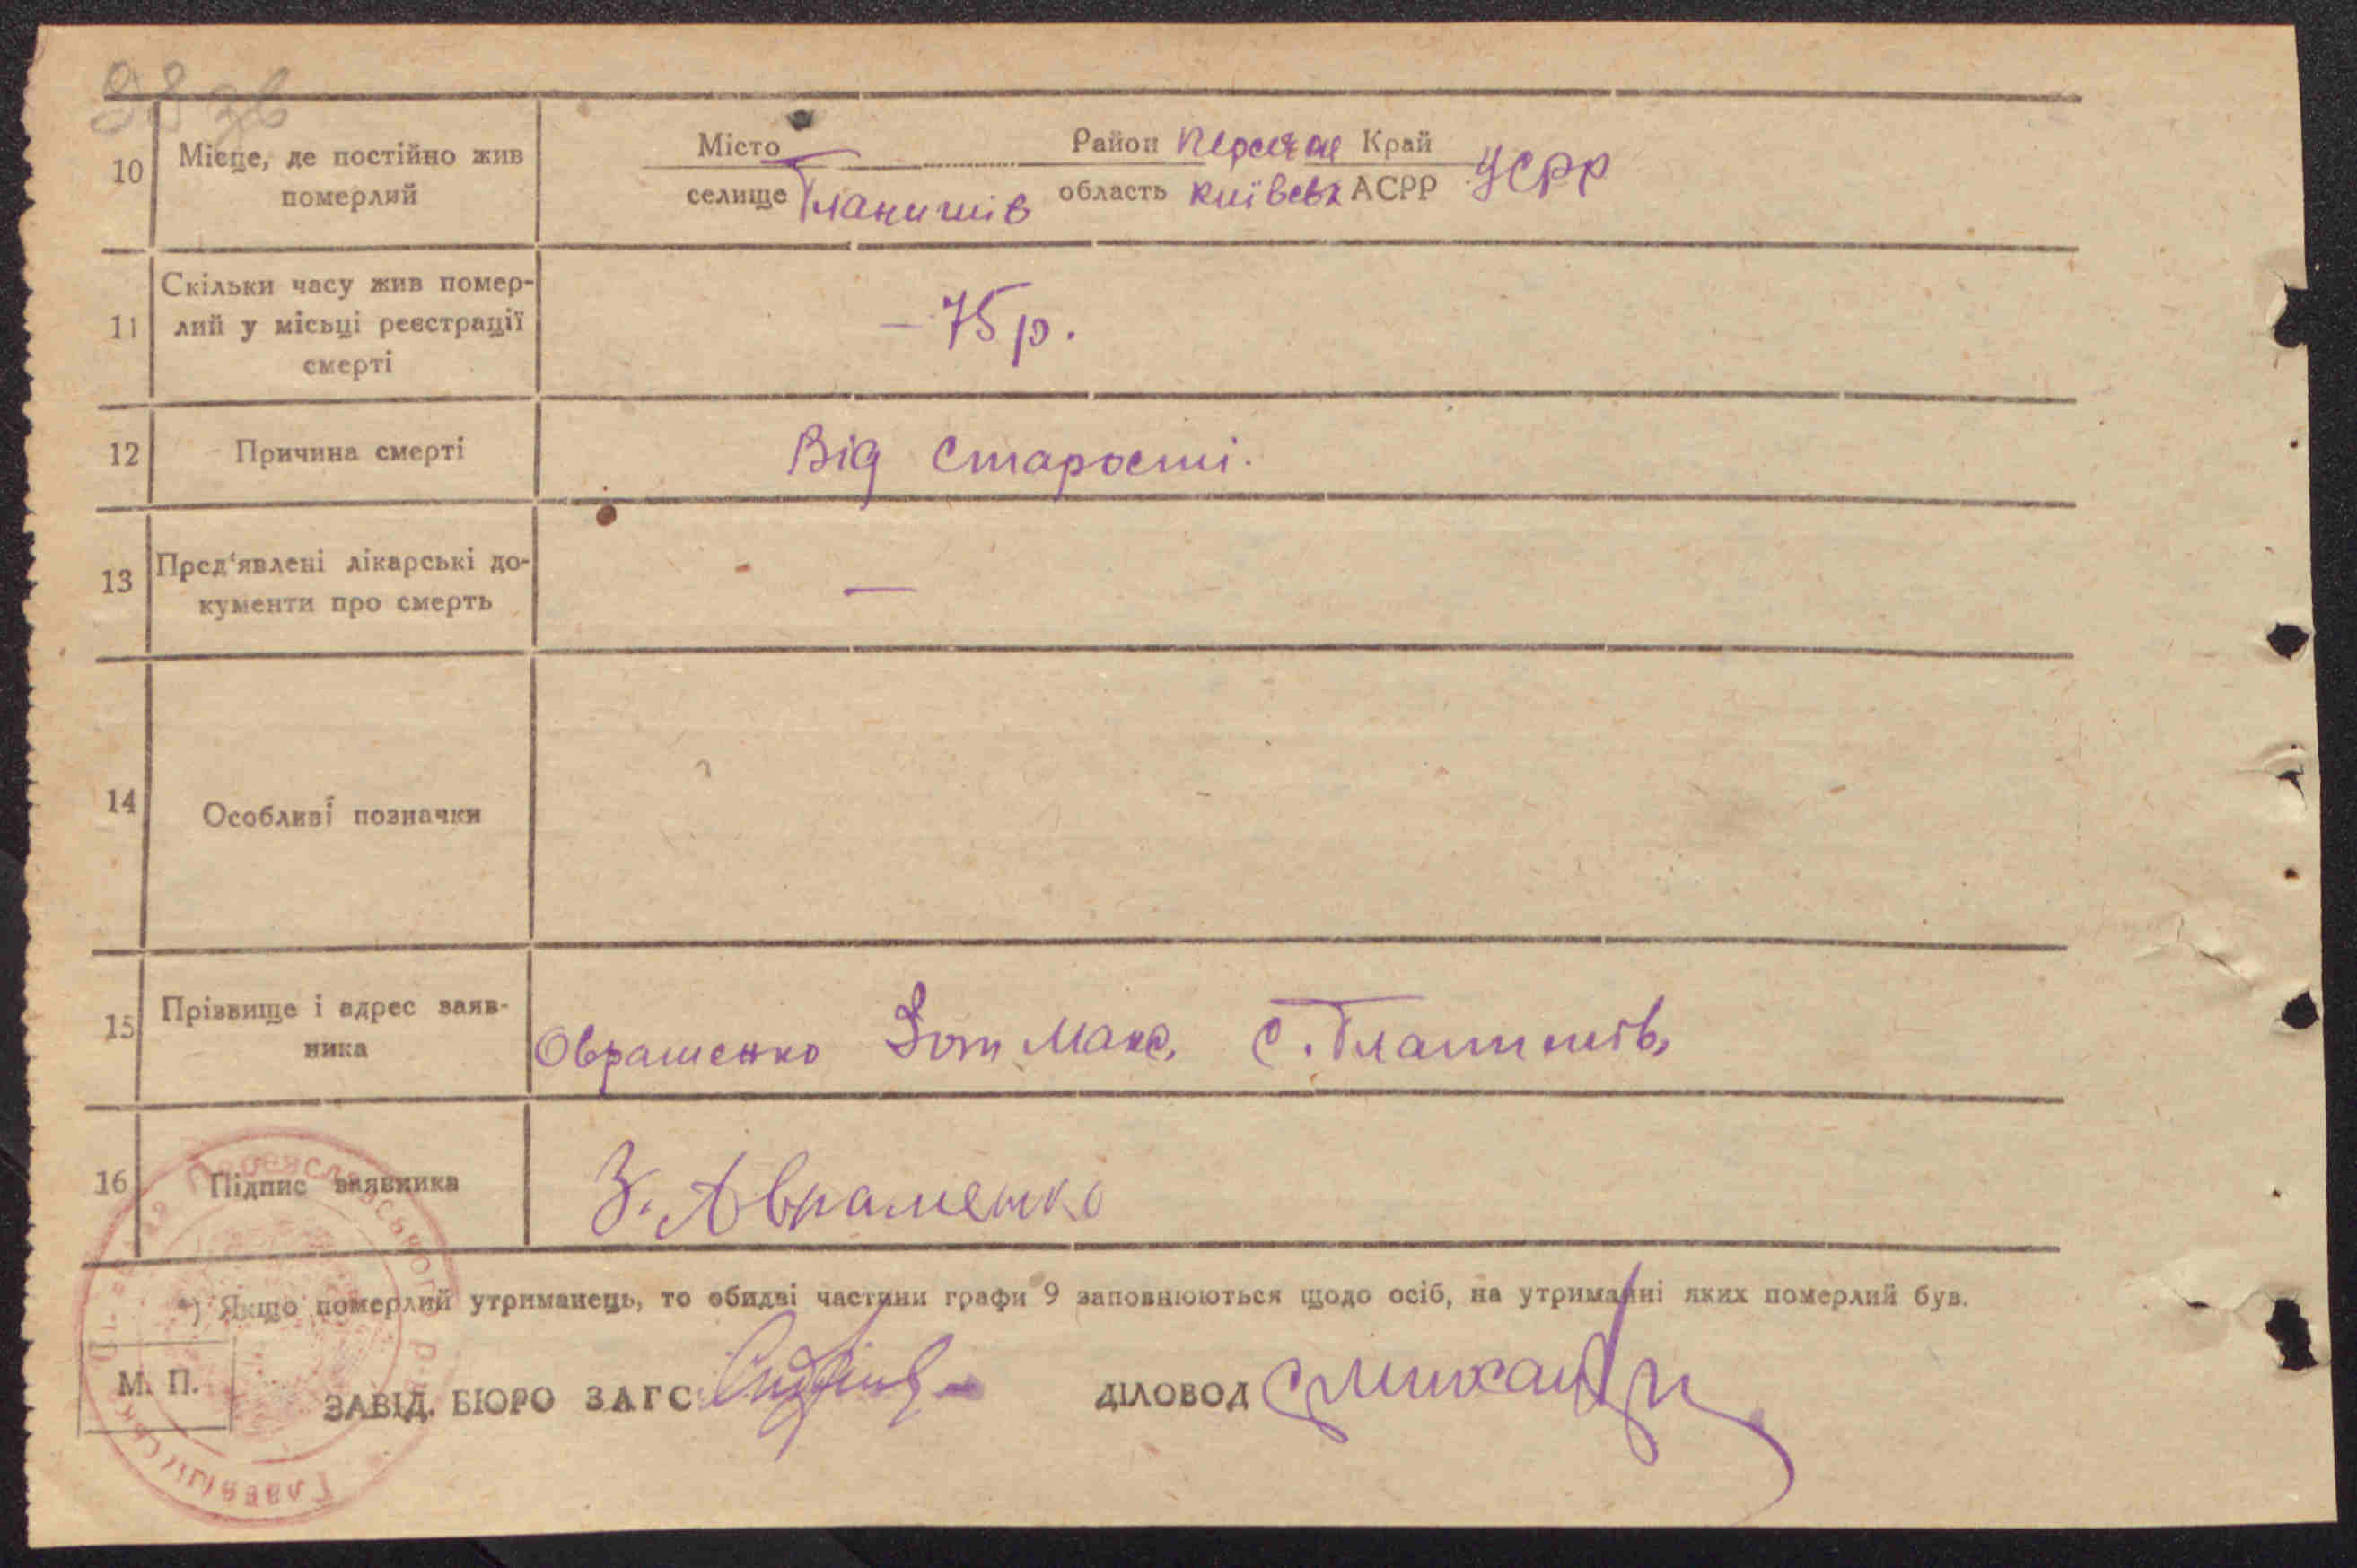 98 зв
10 Місце, де постійно жив померлий
Місто Район Переясл Край
селище Гланишів область Київськ АСРР УСРР
11 Скільки часу жив помер-
лий у місьці реєстрації
смерті
– 75 р.
12 Причина смерті
Від старости.
13 Пред'явлені лікарські до-
кументи про смерть
—
14 Особливі позначки
15 Прізвище і адрес заяв-
ника
Оврашенко Зот Макс. С. Гланишів,
16 Підпис заявника
З. Авраменко
*) Якщо померлий утриманець, то обидві частини графи 9 заповнюються щодо осіб, на утриманні яких померлий був.
М. П.
ЗАВІД. БЮРО ЗАГС
ДІЛОВОД